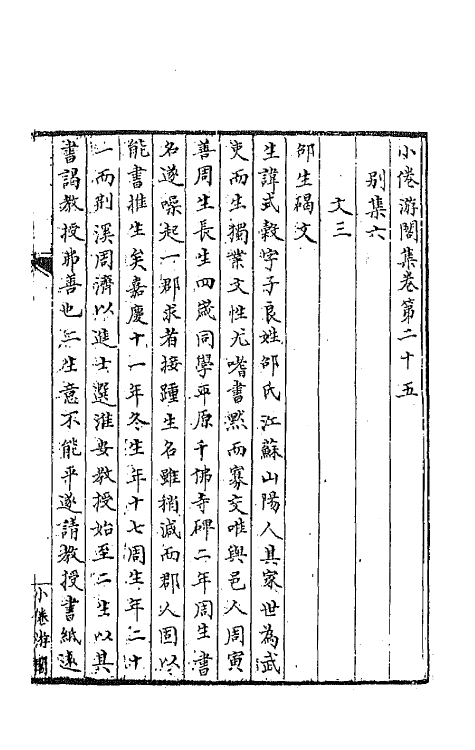 小倦游閣集卷第二十五
別集六
文三
邵生碣文
生諱式穀字子良姓邵氏江蘇山陽人其家世為武
吏而生獨業文性尤嗜書默而寡交唯與邑人周寅
善周生長生四歲同學平原千佛寺碑二年周生書
名遂噪起一郡求者接踵生名雖稍減而郡人固以
能書推生矣嘉慶十一年冬生年十七周生年二十
一而荆溪周濟以進士選淮安教授始至二生以其
書謁教授弗善也二生意不能平遂請教授書紙遠
小倦游閣